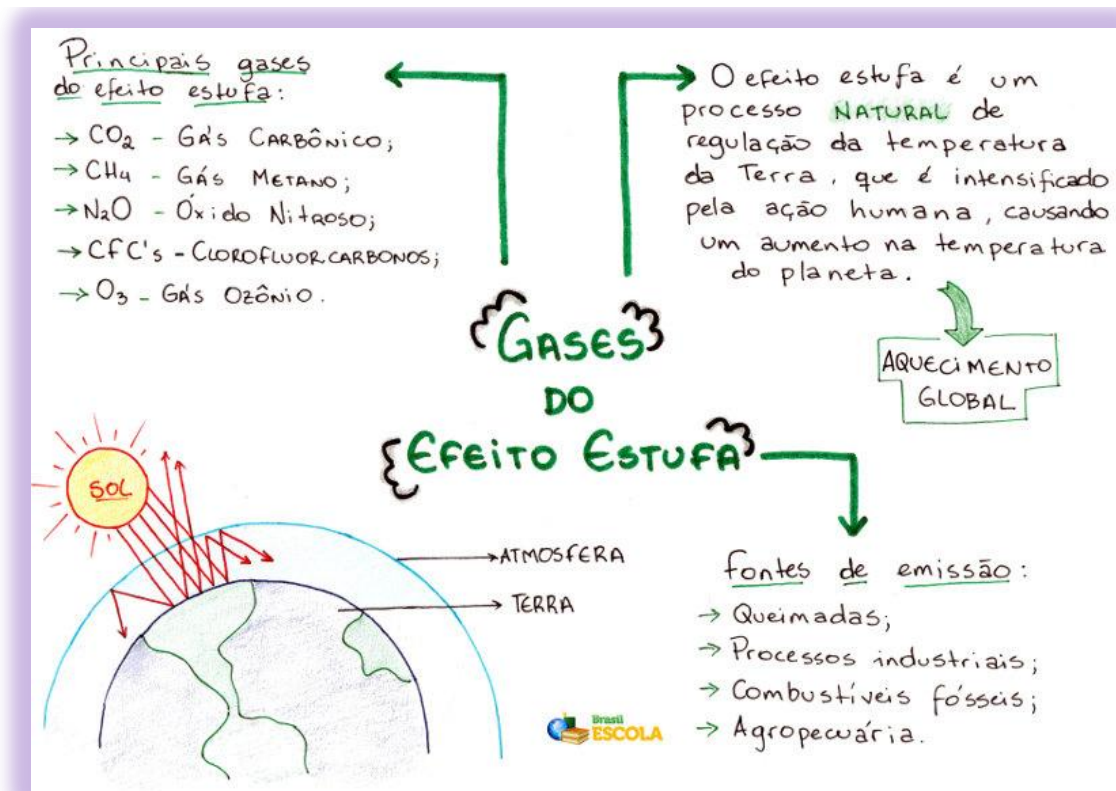 Principais gases
do efeito estufa:
→ CO₂ - GÁS CARBÔNICO;
→ CH₄ - GÁS METANO;
→ N₂O - Óxido Nitroso;
→ CFC's - CLOROFLUORCARBONOS;
→ O₃ - GÁS OZÔNIO.
O efeito estufa é um
processo NATURAL de
regulação da temperatura
da Terra, que é intensificado
pela ação humana, causando
um aumento na temperatura
do planeta.
AQUECIMENTO
GLOBAL
GASES
DO
EFEITO ESTUFA
SOL
ATMOSFERA
TERRA
Fontes de emissão:
→ Queimadas;
→ Processos industriais;
→ Combustíveis fósseis;
→ Agropecuária.
Brasil
ESCOLA